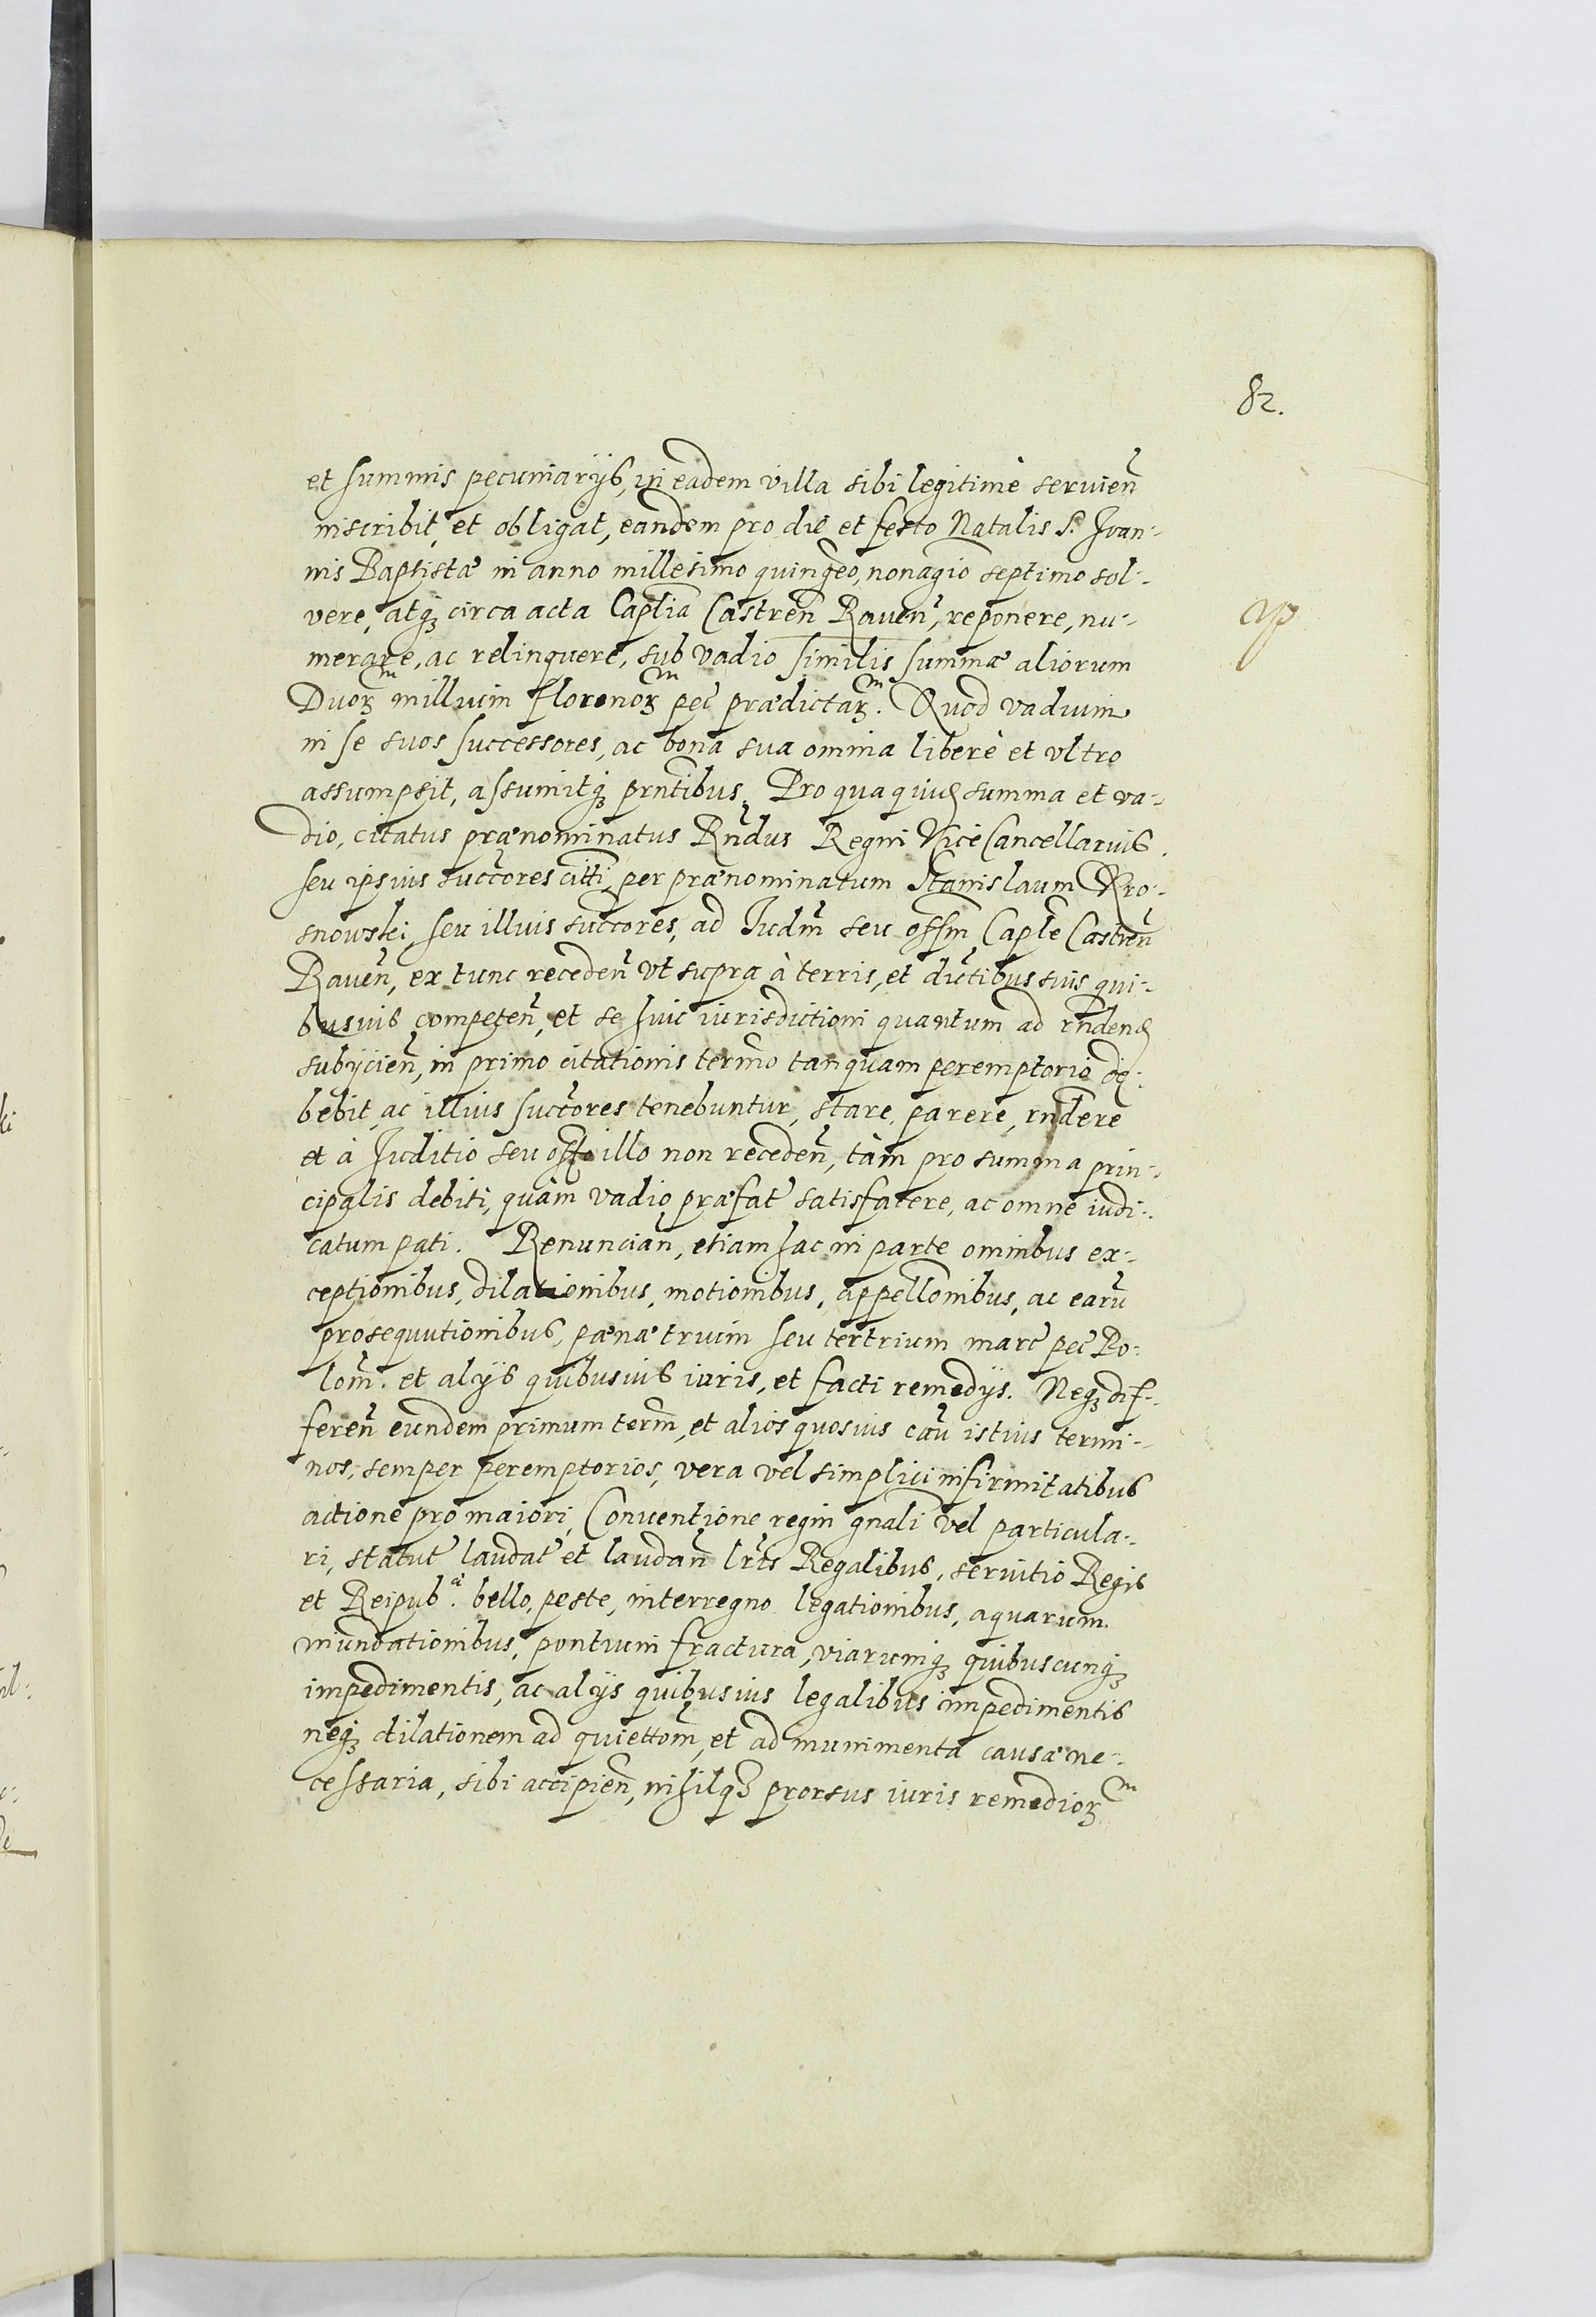 82.
et summis pecuniarijs, in eadem villa sibi legitimè servien̄
inscribit, et obligat, eandem pro die et festo Natalis S. Ioan-
nis Baptistæ in anno millesimo quingeo, nonagio septimo sol-
vere, atq₃ circa acta Caplia Castren̄ Raven̄, reponere, nu-
merare, ac relinquere, sub vadio similis summæ aliorum
Duorꝫ millium florenorꝫ pec̄ prædictarꝫ. Quod vadium
in se suos successores, ac bona sua omnia liberè et vltro
assumpsit, assumitq₃ prn̄tibus. Pro qua quid̄ summa et va-
dio, citatus prænominatus Rn̄dus Regni ViceCancellarius.
seu ipsius succ̄ores citti, per prænominatum Stanislaum Kro-
snowski, seu illius succ̄ores, ad Iudm̄ seu offm̄ Caple Castren̄
Raven̄, ex tunc receden̄ vt supra à terris, et dictibus suis qui-
busuis competen̄, et se huic iurisdictioni quantum ad rn̄dend̄
subijcien̄, in primo citationis termo tanquam peremptorio de-
bebit, ac illius succ̄ores tenebuntur, stare, parere, rn̄dere
et à Iuditio seu offo illo non receden̄, tàm pro summa prin-
cipalis debiti, quàm vadio præfat̄ satisfacere, ac omne iudi-
catum pati. Renuncian̄, etiam hac in parte omnibus ex-
ceptionibus, dilationibus, motionibus, appellōnibus, ac earū
prosequutionibus, pænæ trium seu tertrium marc̄ pec̄ Po-
lom̄. et alijs quibusuis iuris, et facti remedijs. Neq₃ dif-
feren̄ eundem primum term̄, et alios quosuis cāu istius termi-
nos, semper peremptorios, vera vel simplici infirmitatibus
actione pro maiori, Conuentione regni gnāli vel particula-
ri, statut̄ laudat̄ et laudan̄ lr̄is Regalibus, seruitio Regis
et Reipub.æ bello, peste, interregno legationibus, aquarum
inundationibus, pontium fractura, viarumq₃ quibuscunq₃
impedimentis, ac alijs quibusuis legalibus impedimentis
neq₃ dilationem ad quiettom̄, et ad munimenta causæ ne-
cessaria, sibi accipien̄, nihilq₃ prorsus iuris remediorꝫ